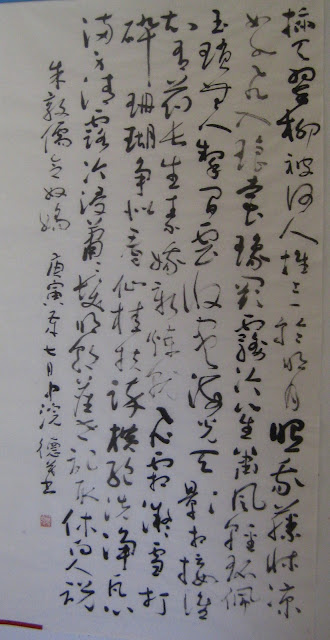 插天翠柳被何人推上一輪明月照我藤牀涼
似水飛入瑤臺瓊闕霧冷笙簫風輕環佩
玉鎖無人掣閒雲收盡海光天影相接誰
信有藥長生素娥新煉就飛霜凝雪打
碎珊瑚爭似看仙桂扶疎橫絕洗淨凡心
滿身清露冷浸蕭蕭髮明朝塵世記取休向人說
朱敦儒念奴嬌 庚寅年七月中浣 德書